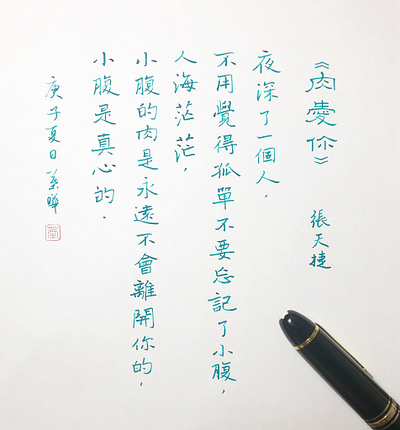 《肉愛你》
張天捷
夜深了一個人，
不用覺得孤單不要忘記了小腹，
人海茫茫，
小腹的肉是永遠不會離開你的，
小腹是真心的．
庚子夏日